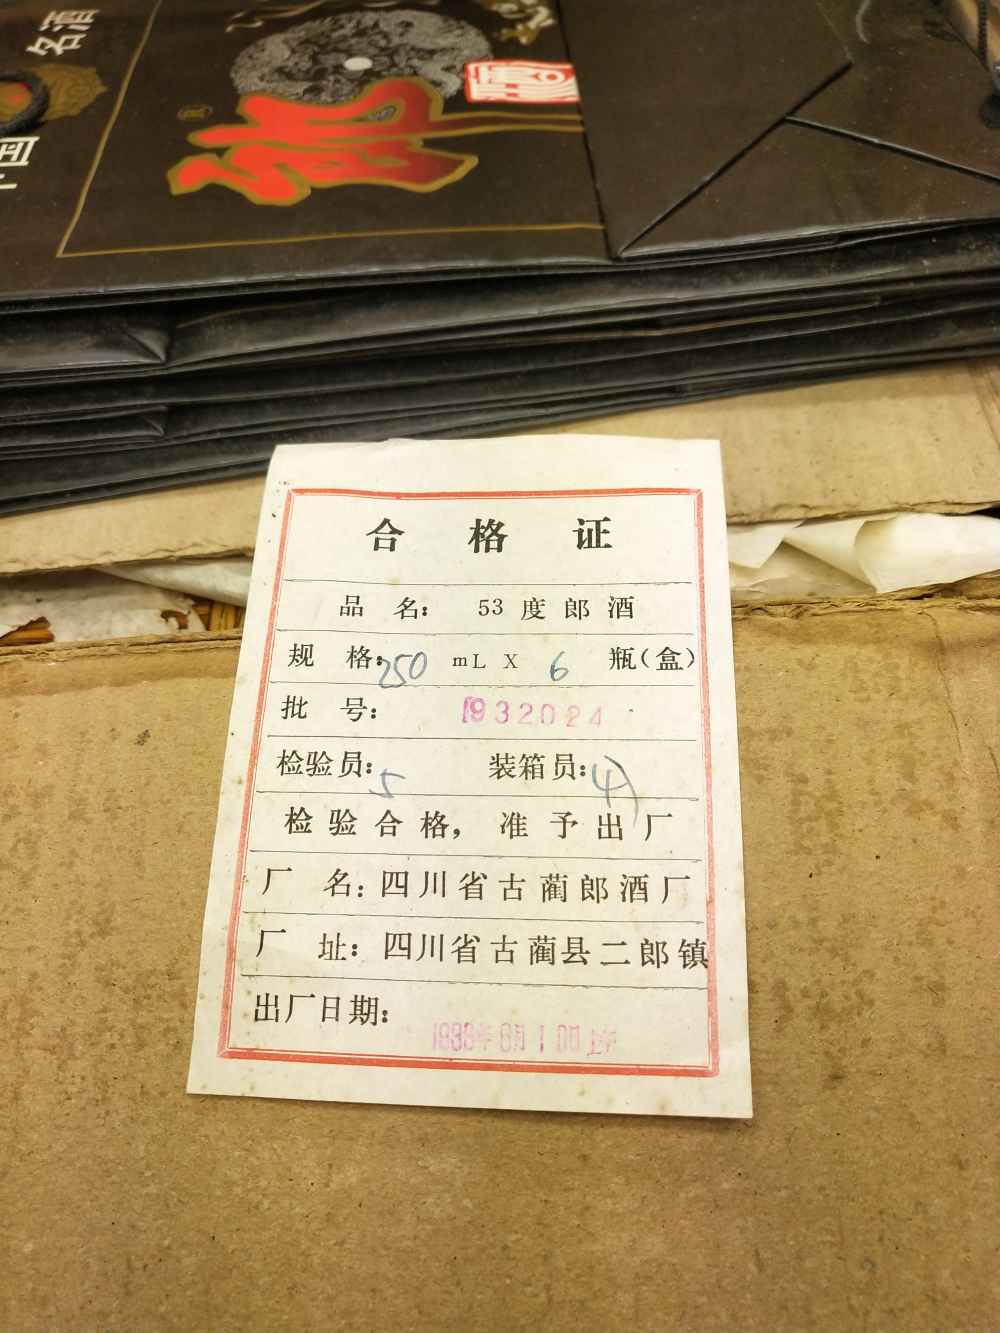 名酒
中国
郎
合格证
品名: 53度郎酒
规格: 250 mL X 6 瓶(盒)
批号: 1932024
检验员: 5 装箱员:
检验合格,准予出厂
厂名: 四川省古蔺郎酒厂
厂址: 四川省古蔺县二郎镇
出厂日期: